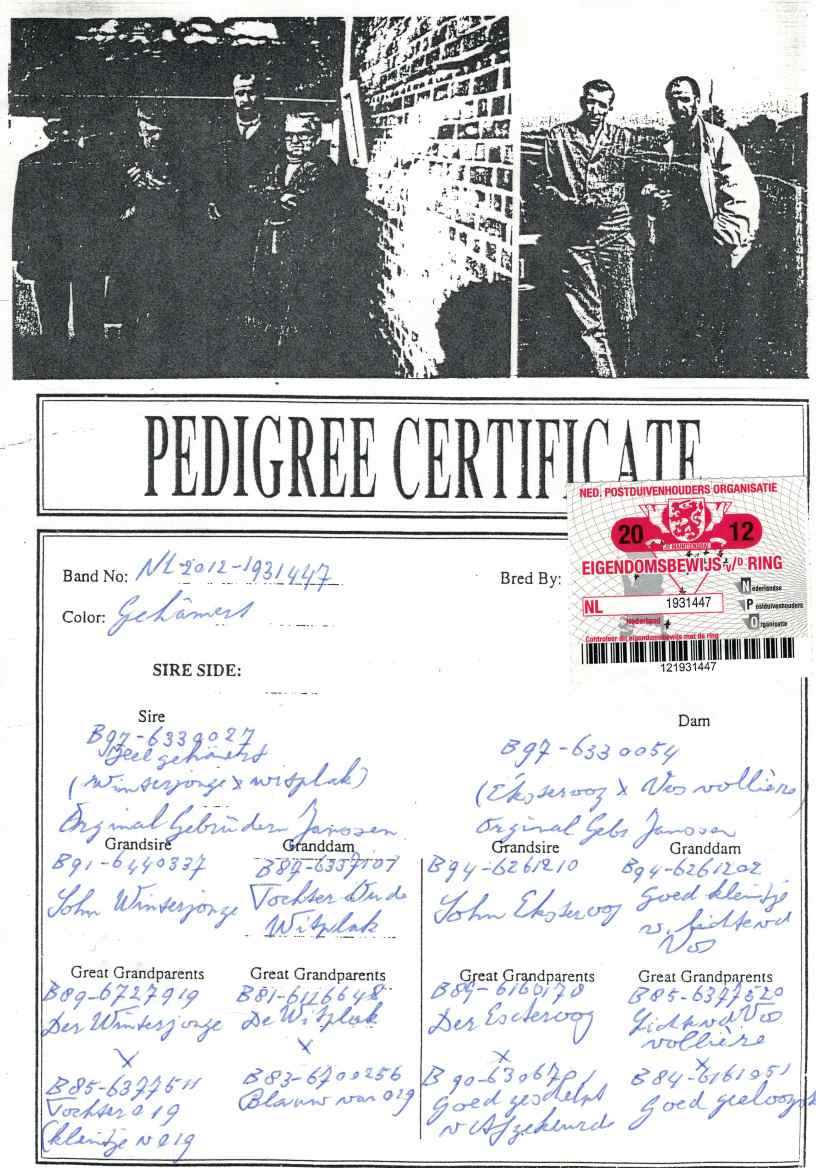 PEDIGREE CERTIFICATE
NED. POSTDUIVENHOUDERS ORGANISATIE
20 12
JE MAINTIENDRAI
EIGENDOMSBEWIJS V/D RING
NL 1931447
Nederland
Nederlandse
Postduivenhouders
Organisatie
Controleer dit eigendomsbewijs met de ring
121931447
Band No: NL-2012-1931447
Bred By:
Color: Gehämert
SIRE SIDE:
Sire
B97-6339027
gehämert
(Winserjonge x witplak)
Orginal Gebrüdern Janssen
Dam
B97-6330054
(Eksteroog x Vos vollière)
Orginal Gebr Janssen
Grandsire
B91-6440337
Sohn Winserjonge
Granddam
Tochter Oude
Witplak
Grandsire
B94-6261210
Sohn Eksteroog
Granddam
B94-6261202
goed kleintje
v. lichte vd
Vos
Great Grandparents
B89-6727919
Der Winserjonge
x
B85-6377511
Tochter 019
(kleintje v 019
Great Grandparents
B81-6116648
De Witplak
x
B83-6700256
Blauw van 019
Great Grandparents
B89-6160170
Der Escteroog
x
B90-6306701
Goed geschelpt
v Afgekeurde
Great Grandparents
B85-6377520
Lichte vd Vos
vollière
x
B84-6161051
goed